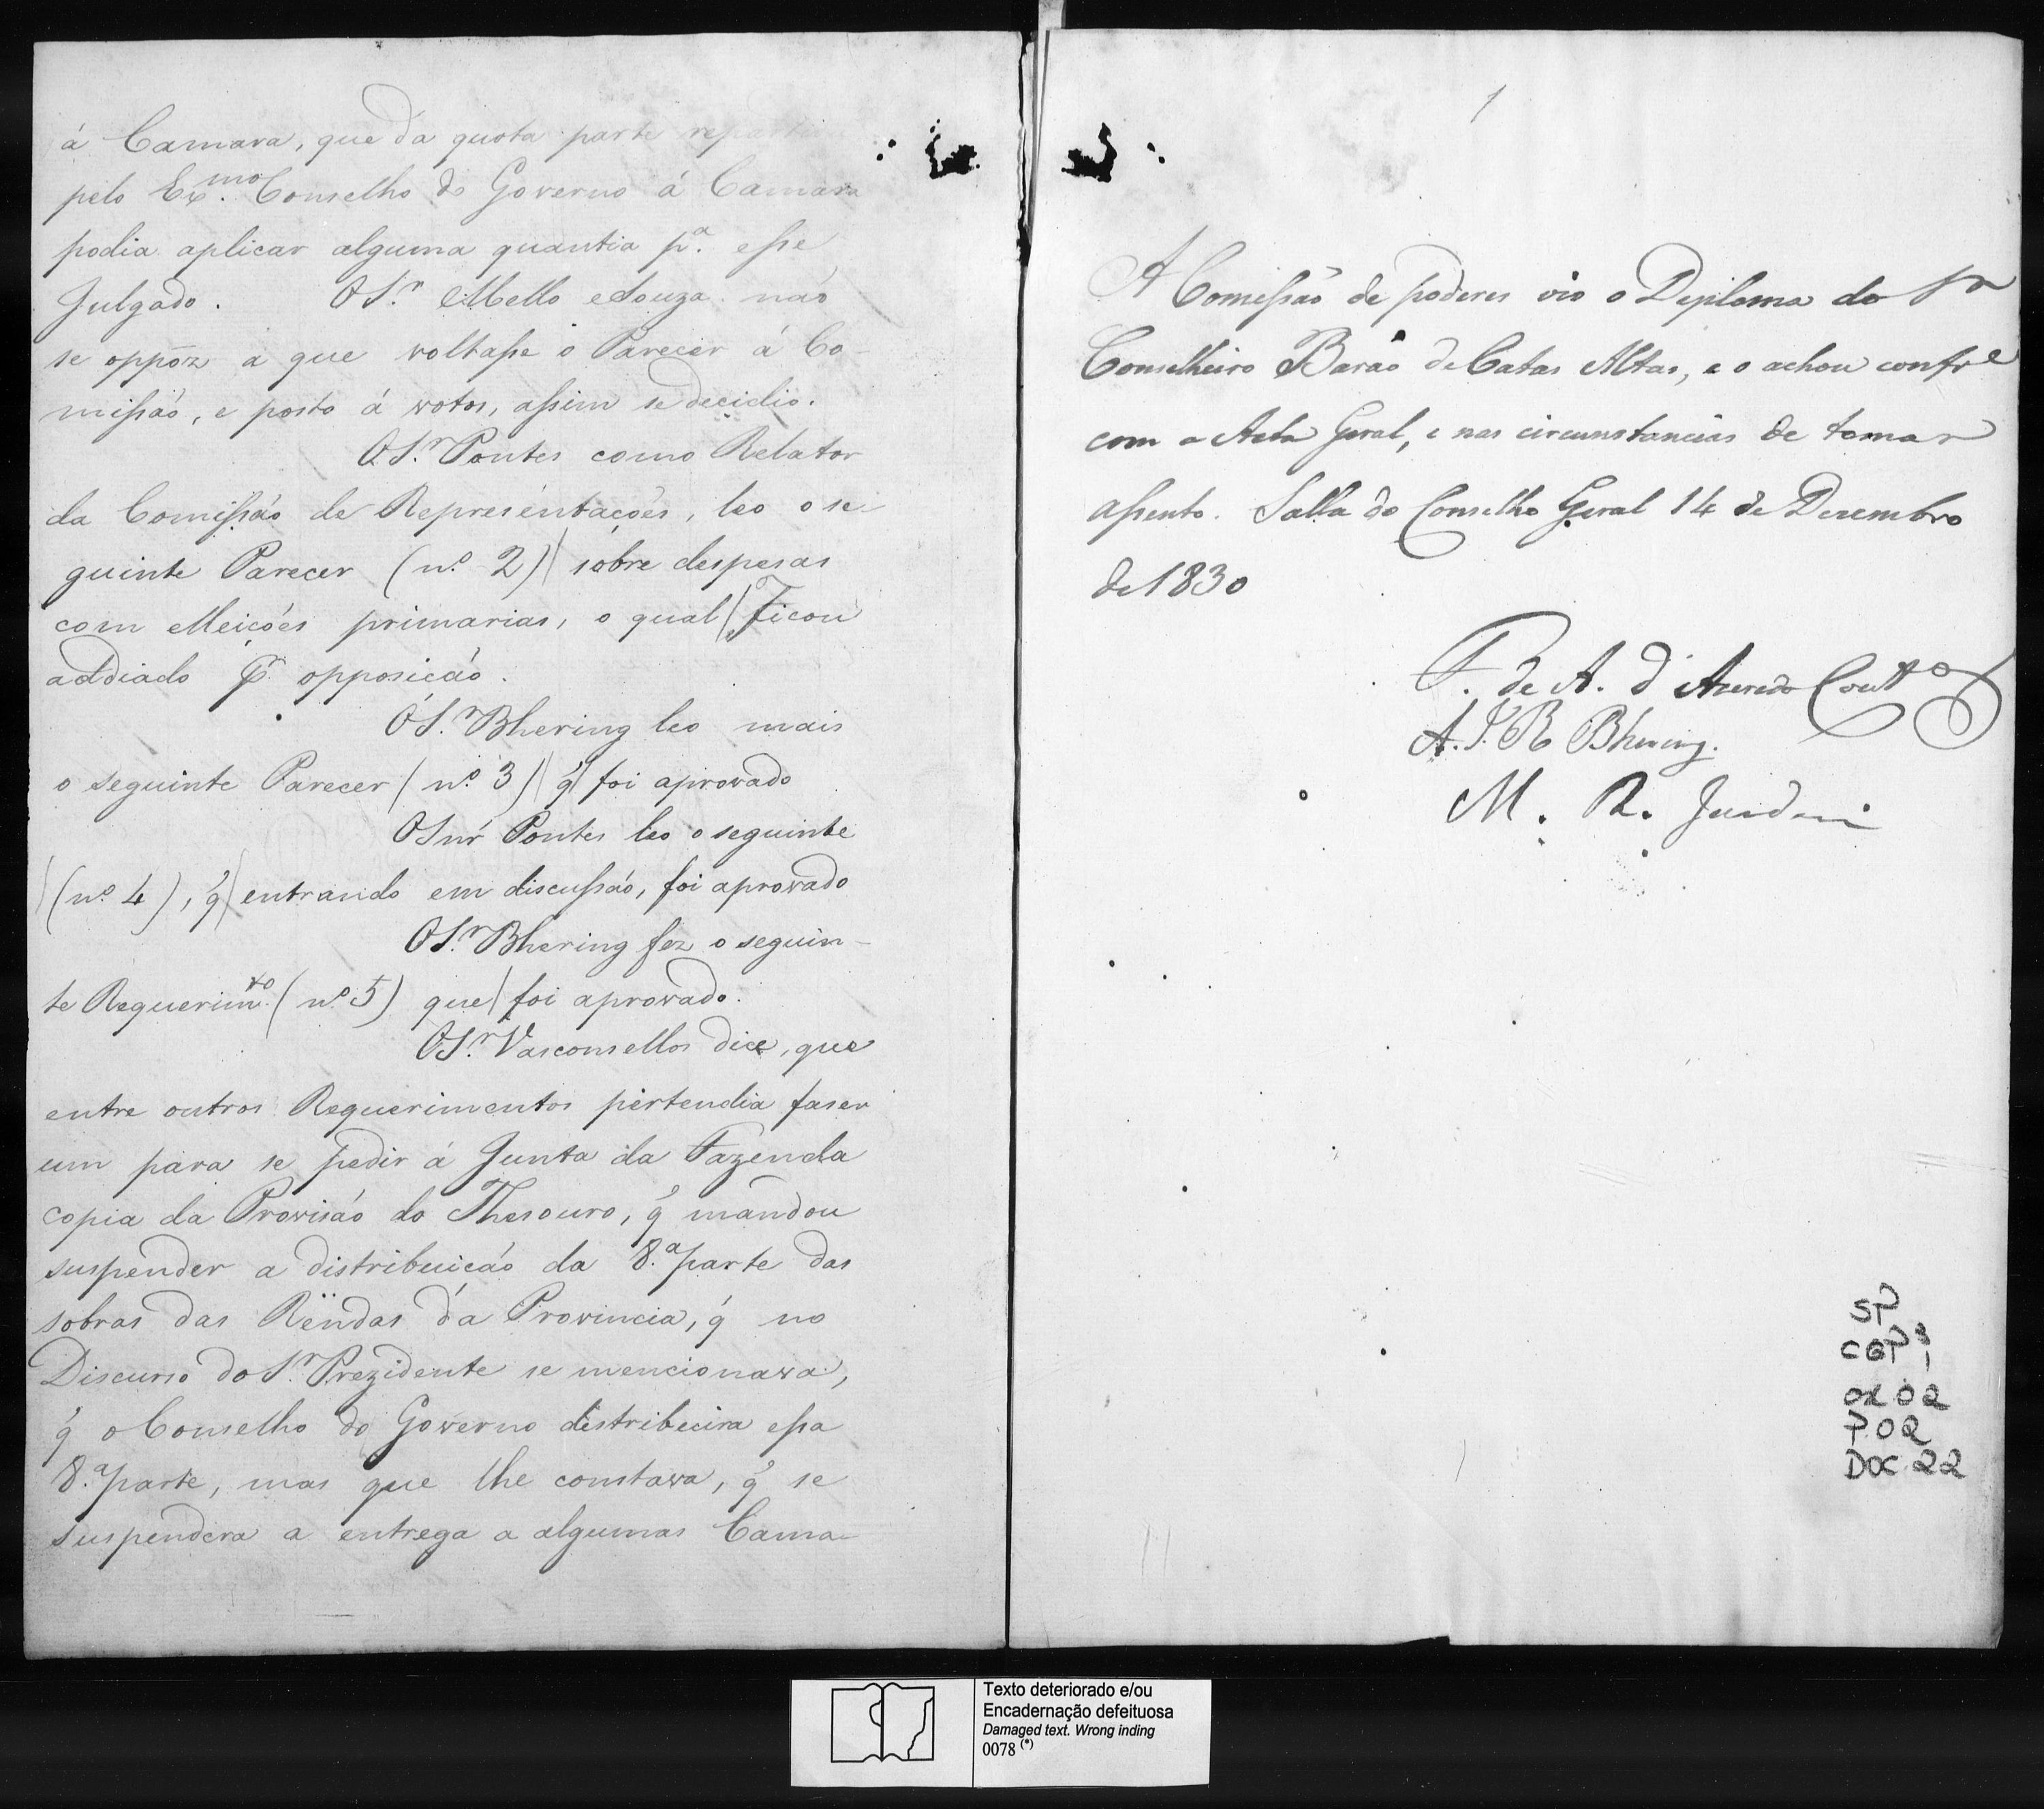 á Camara, que da quota parte
pelo Ex.mo Conselho do Governo á Camara
podia aplicar alguma quantia p.a esse
Julgado. O S.r Mello e Souza não
se oppôz a que voltasse o Parecer á Co-
missão, e posto á votos, assim se decidio.
O S.r Pontes como Relator
da Comissão de Representações, leo o se-
guinte Parecer (n.o 2) sobre despesas
com elleições primarias, o qual ficou
addiado p opposição.
O S.r Bhering leo mais
o seguinte Parecer (n.o 3) q̃ foi aprovado
O Snr Pontes leo o seguinte
(n.o 4), q̃ entrando em discussão, foi aprovado
O S.r Bhering fez o seguin-
te Requerim.to (n.o 5) que foi aprovado.
O S.r Vasconsellos dice, que
entre outros Requerimentos pertendia faser
um para se pedir á Junta da Fazenda
copia da Provisão do Thesouro, q̃ mandou
suspender a distribuição da 8.a parte das
sobras das Rendas da Provincia, q̃ no
Discurso do S.r Prezidente se mencionava,
q̃ o Conselho do Governo distribuira essa
8.a parte, mas que lhe constava, q̃ se
suspendera a entrega a algumas Cama-
1
A Comissão de poderes vio o Diploma do Sr
Conselheiro Barão de Catas Altas, e o achou confr.e
com a Acta Geral, e nas circunstancias de tomar
assento. Salla do Conselho Geral 14 de Dezembro
de 1830
F. de A. d'Azeredo Coutt.o
A. J. R Bhering.
M. R. Jardim
SP
CGP 1
CX 02
P. 02
DOC. 22
Texto deteriorado e/ou
Encadernação defeituosa
Damaged text. Wrong inding
0078 (*)